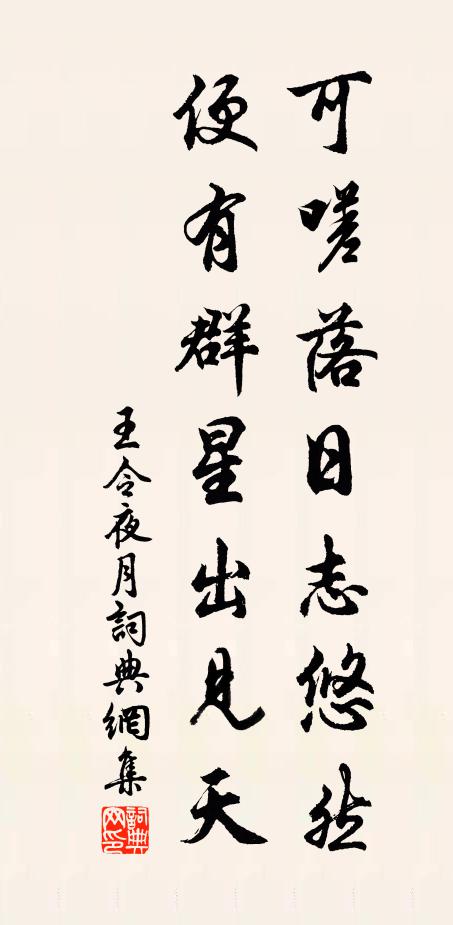 可嗟落日志悠然
便有群星出見天
王令夜月詞典網集
詞典網印